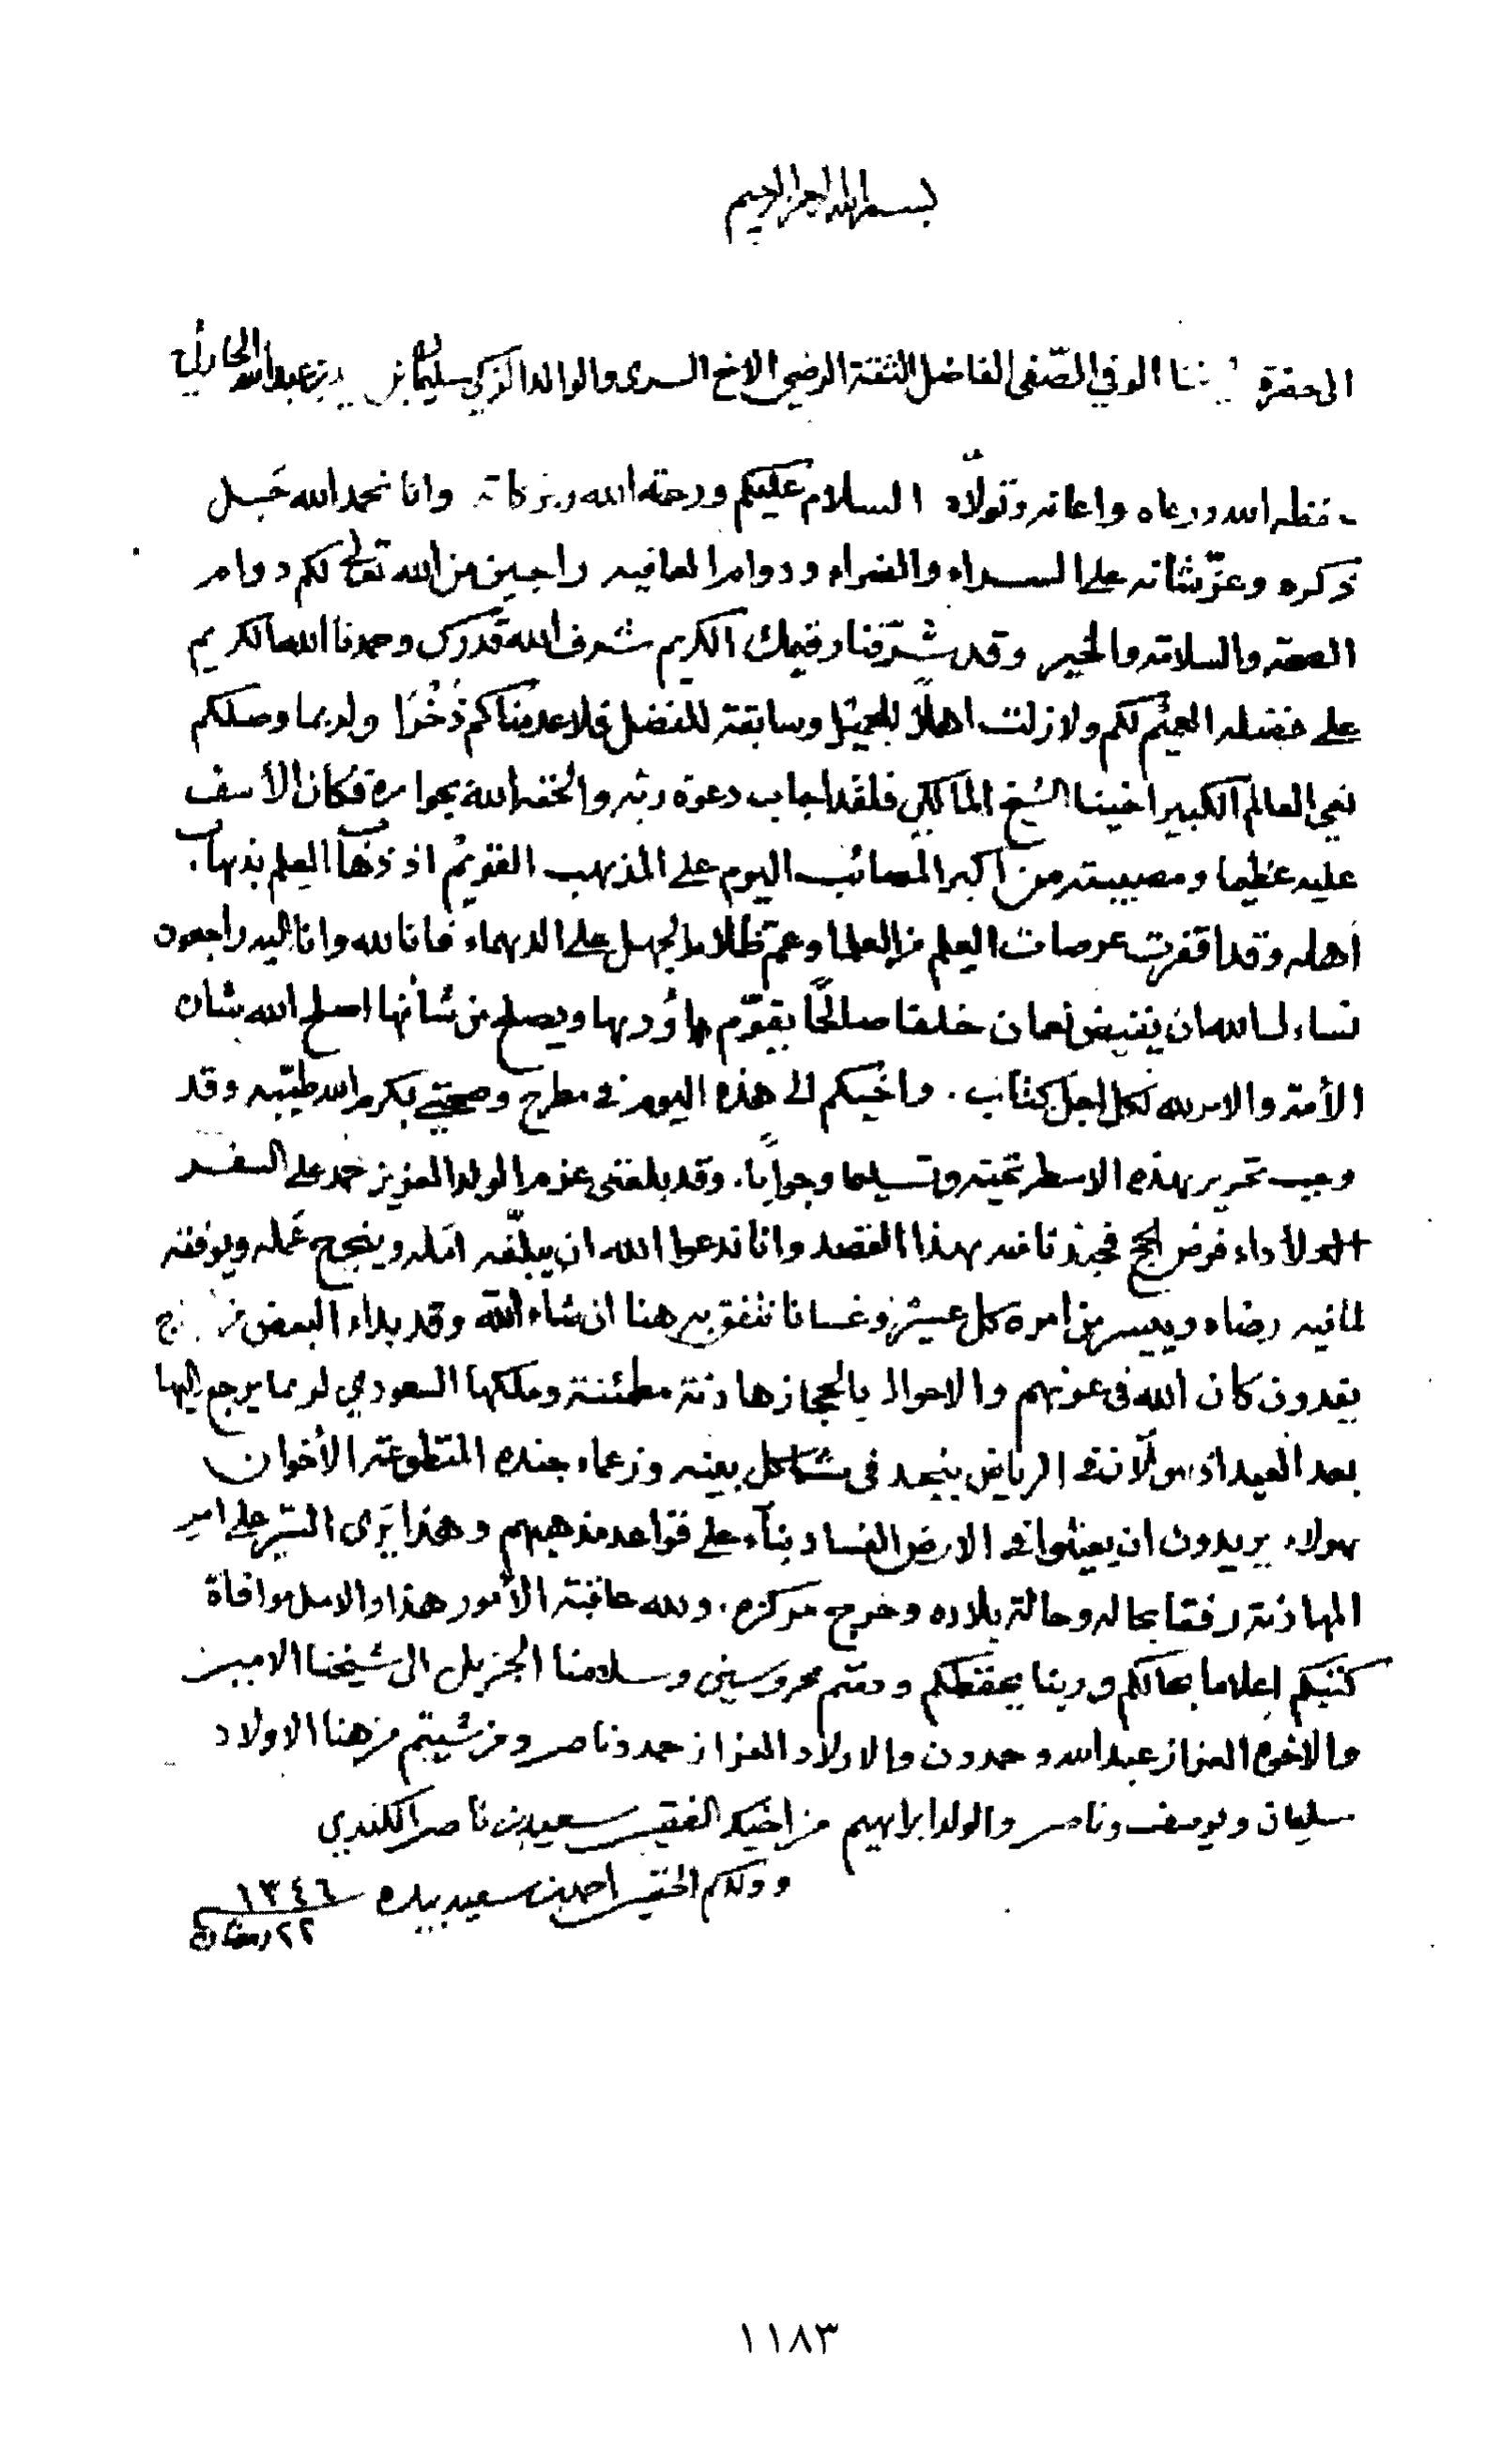 بسم الله الرحمن الرحيم
الى حضرة الوفي الصّفي الفاضل الثقة الرضي الاخ السري والوالد الزكي سليمان بن بن عبدالله الحارثي
حفظه الله ورعاه واعانه وتولّاه السلام عليكم ورحمة الله وبركاته وانا نحمد الله جَل
ذكره وعزّ شانه على السراء والضراء ودوام العافيه راجين من الله تعالى لكم دوام
الصحة والسلامة والخير وقد شرّفنا رقيمك الكريم شرف الله قدرك وحمدنا الله الكريم
على فضله العميم لكم ولا زلت اهلاً للجميل وسابقة للفضل فلا عدمناكم ذُخْرًا ولربما وصلكم
نعي العالم الكبير اخينا الشيخ المالكي فلقد اجاب دعوة ربه والحقه الله بجواره فكان الأسف
عليه عظيما ومصيبته من اكبر المصائب اليوم على المذهب القويم اذ ذهاب العلم بذهاب
أهله وقد اقفرت عرصات العلم من العلما وعمّ ظلام الجهل على الدهماء فانا لله وانا اليه راجعون
نساءل الله ان يقيض لعمان خلفا صالحًا يقوّم اودها ويصلح من شأنها اصلح الله شان
الأمة والامر لله لكل اجل كتاب. واخيكم الى هذه اليوم في مطرح وصحتي بكرم الله طيّبه وقد
وجب تحرير هذه الاسطر تحية وتسليما وجوابًا. وقد بلغني عزم الولد العزيز حمد على السفر
لأداء فرض الحج بهذا القصد وانا ندعوا الله ان يبلّغه امله وينجح عَمله ويوفقه
لما فيه رضاه وييسر من امره كل عسير وعسانا نتفق به هنا ان شاء الله وقد بداء البعض من
يفدون كان الله في عونهم والاحوال بالحجاز هادئة مطمئنة وملكها السعودي لربما يرجع اليها
بعد العيد اذ هو الآن في الرياض بنجد في مشاكل بينه وزعماء جنده المتطوعة الأخوان
هولاء يريدون ان يعيثوا في الارض الفساد بنآء على قواعد مذهبهم وهذا يَرى السير على امر
المهادنة رفقا بحاله وحالة بلاده وحرج مركزه. ولله عاقبة الأمور هذا والامل موافاة
كتبكم إعلاما بحالكم وربنا يحفظكم ودمتم محروسين وسلامنا الجزيل الى شيخنا الامين
والاخوه العزاز عبدالله وحمدون والاولاد العزاز حمد وناصر ومن شيتم من هنا الاولاد
سليمان ويوسف وناصر والولد ابراهيم من اخيك الفقير سعيد بن ناصر الكندي
وولدكم الحقير احمد بن سعيد بيده ١٣٤٦
٢٢ رمضان
١١٨٣